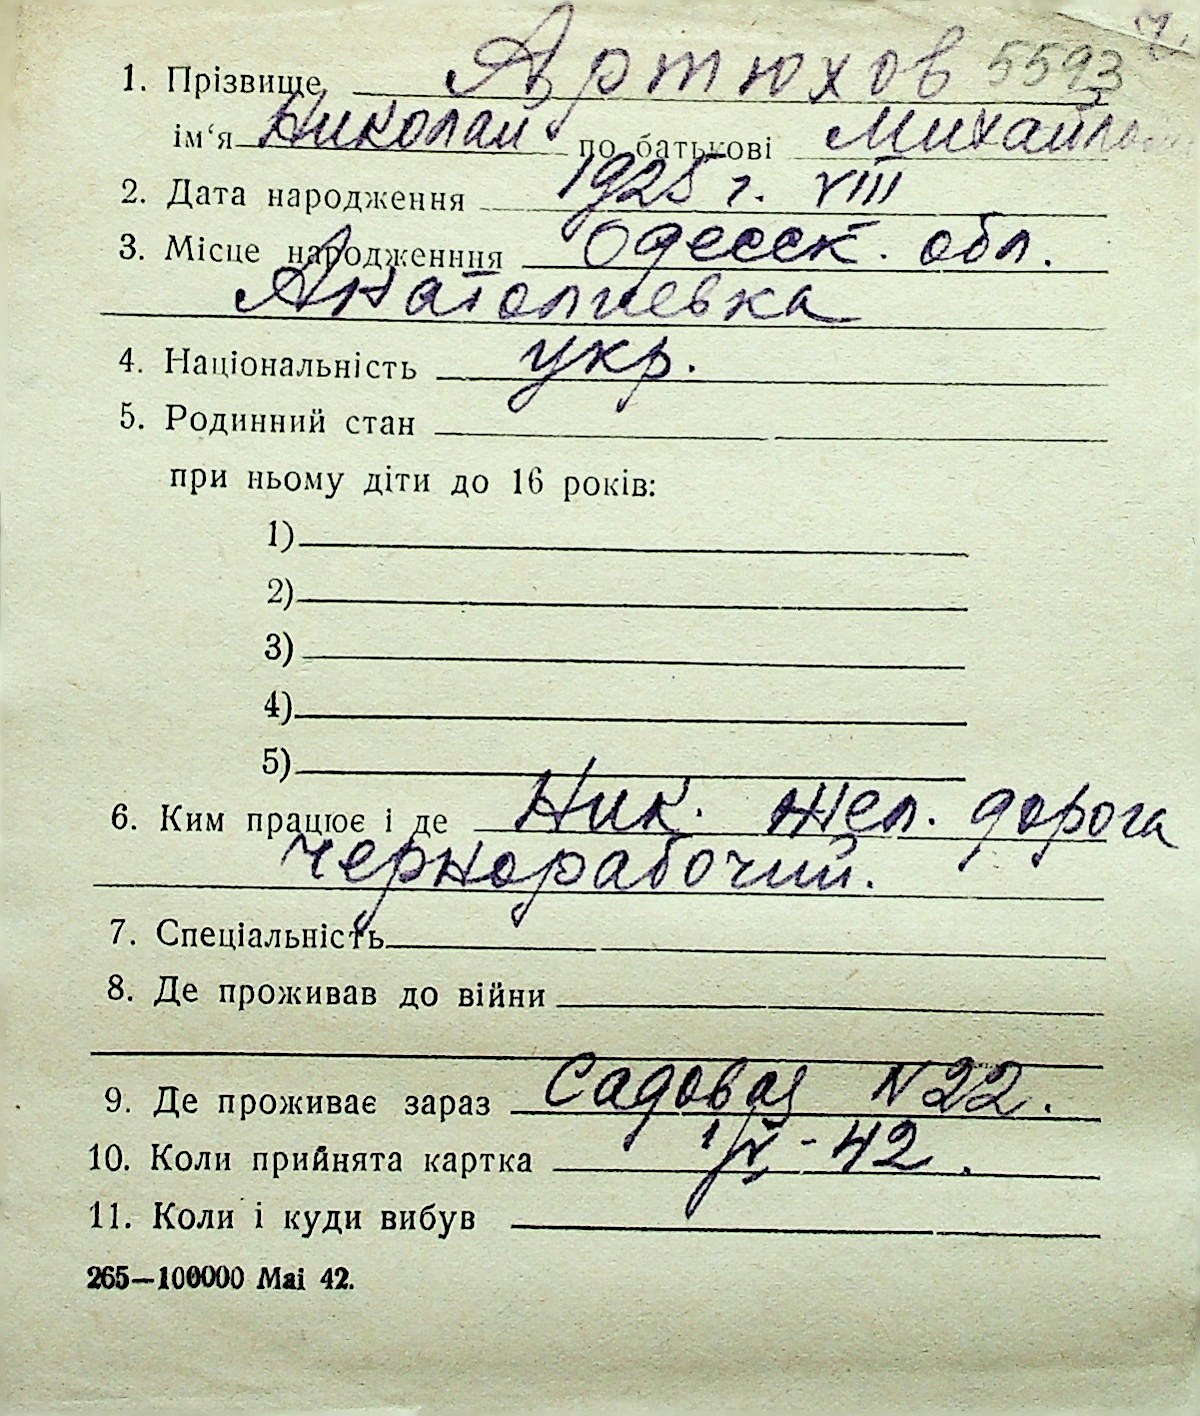 1. Прізвище Артюхов 5593
ім‘я Николай по батькові Михайлов
2. Дата народження 1925 г. VIII
3. Місце народженння Одесск. обл.
Анатолиевка
4. Національність укр.
5. Родинний стан
при ньому діти до 16 років:
1)
2)
3)
4)
5)
6. Ким працює і де Ник. Жел. дорога
чернорабочий.
7. Спеціальність
8. Де проживав до війни
9. Де проживає зараз Садовая N 22.
10. Коли прийнята картка - 42.
11. Коли і куди вибув
265—100000 Mai 42.